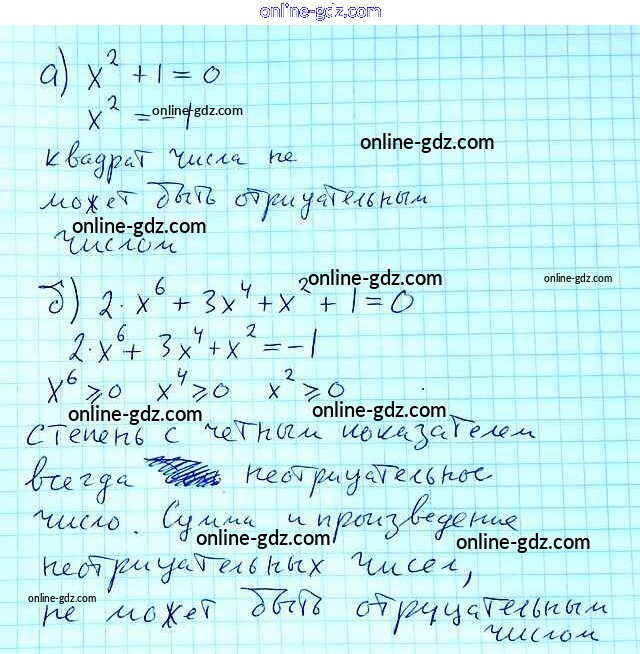 online-gdz.com
а) x² + 1 = 0
x² = -1
online-gdz.com
online-gdz.com
квадрат числа не
может быть отрицательным
online-gdz.com
числом
online-gdz.com
online-gdz.com
б) 2·x⁶ + 3x⁴ + x² + 1 = 0
2·x⁶ + 3x⁴ + x² = -1
x⁶ ⩾ 0 x⁴ ⩾ 0 x² ⩾ 0
online-gdz.com online-gdz.com
степень с четным показателем
всегда неотрицательное
число. Сумма и произведение
online-gdz.com online-gdz.com
неотрицательных чисел,
online-gdz.com
не может быть отрицательным
online-gdz.com
числом